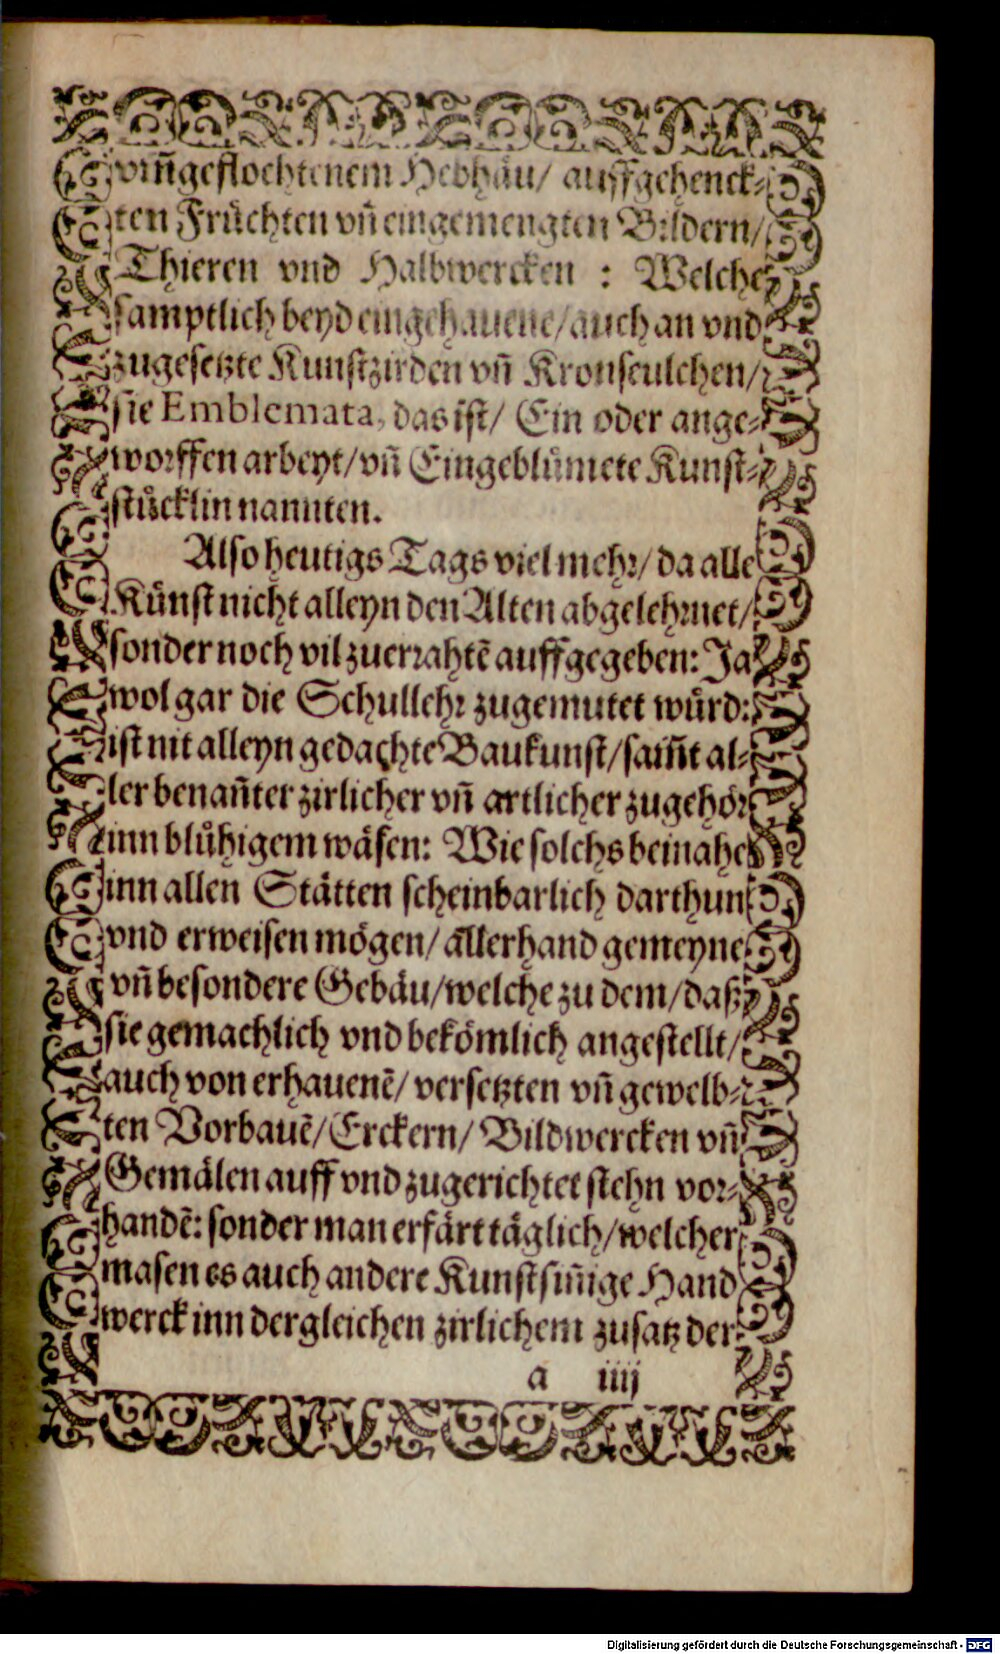 vm̃geflochtenem Hebhäu/ auffgehenck-
ten Früchten vñ eingemengten Bildern/
Thieren vnd Halbwercken : Welche
samptlich beyd eingehauene/ auch an vnd
zugesetzte Kunstzirden vñ Kronseulchen/
sie Emblemata, das ist/ Ein oder ange-
worffen arbeyt/ vñ Eingeblůmete Kunst-
stůcklin nannten.
Also heutigs Tags viel mehr/ da alle
Künst nicht alleyn den Alten abgelehrnet/
sonder noch vil zuerrahtē auffgegeben: Ja
wol gar die Schullehr zugemutet würd:
ist nit alleyn gedachte Baukunst/ sam̃t al-
ler benañter zirlicher vñ artlicher zugehör
inn blůhigem wäsen: Wie solchs beinahe
inn allen Stätten scheinbarlich darthun
vnd erweisen mögen/ allerhand gemeyne
vñ besondere Gebäu/ welche zu dem/ daß
sie gemachlich vnd bekömlich angestellt/
auch von erhauenē/ versetzten vñ gewelb-
ten Vorbauē/ Erckern/ Bildwercken vñ
Gemälen auff vnd zugerichtet stehn vor-
handē: sonder man erfärt täglich/ welcher
masen es auch andere Kunstsiñige Hand
werck inn dergleichen zirlichem zusatz der
a iiij
Digitalisierung gefördert durch die Deutsche Forschungsgemeinschaft - DFG